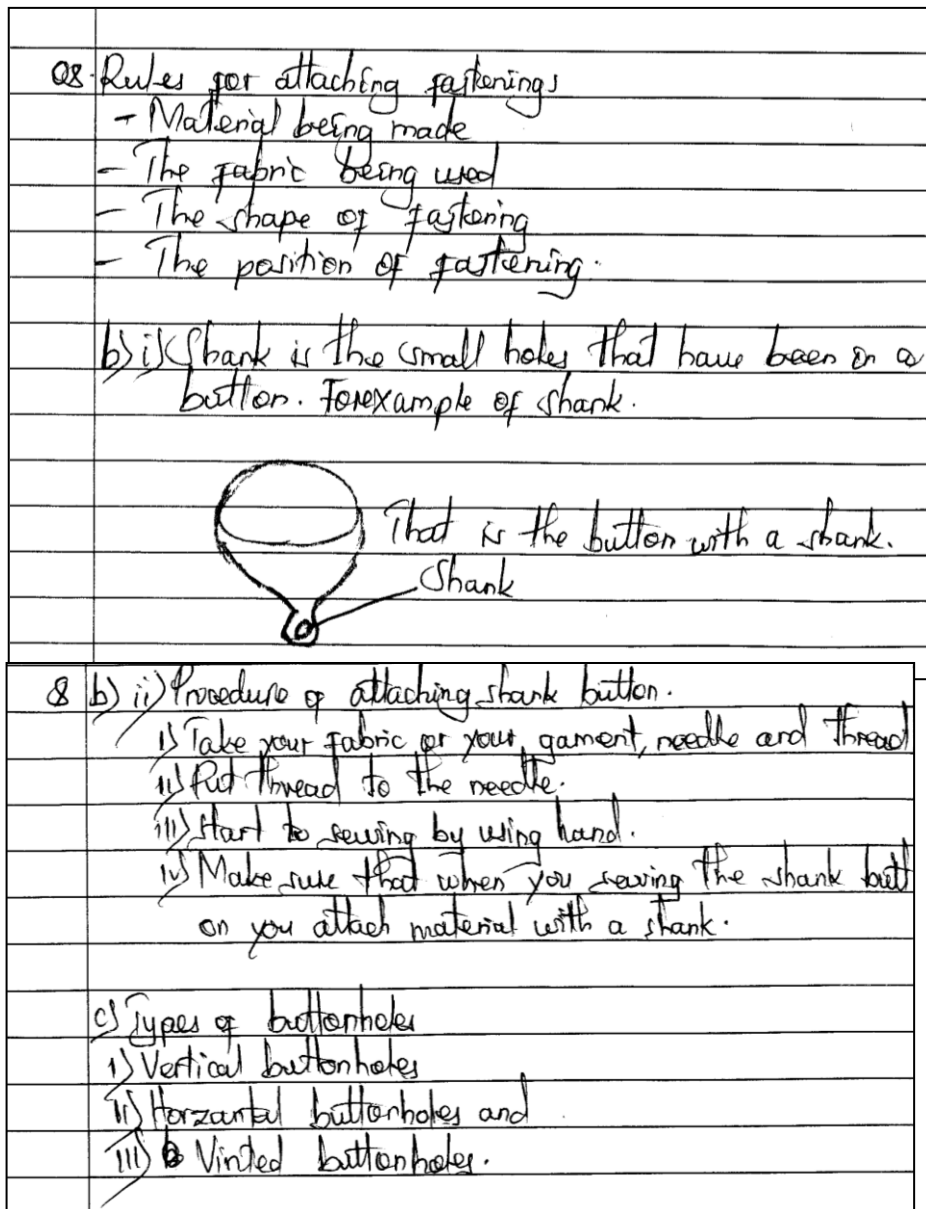 Q8. Rules for attaching fastenings
- Material being made
- The fabric being used
- The shape of fastening
- The position of fastening.
b) i) Shank is the small holes that have been in a
button. Forexample of shank.
That is the button with a shank.
Shank
8 b) ii) Procedure of attaching shank button.
i) Take your fabric or your gament, needle and thread
ii) Put thread to the needle.
iii) Start to sewing by using hand.
iv) Make sure that when you sewing the shank butt
on you attach material with a shank.
c) Types of buttonholes
i) Vertical buttonholes
ii) Horzantal buttonholes and
iii) Vinted buttonholes.